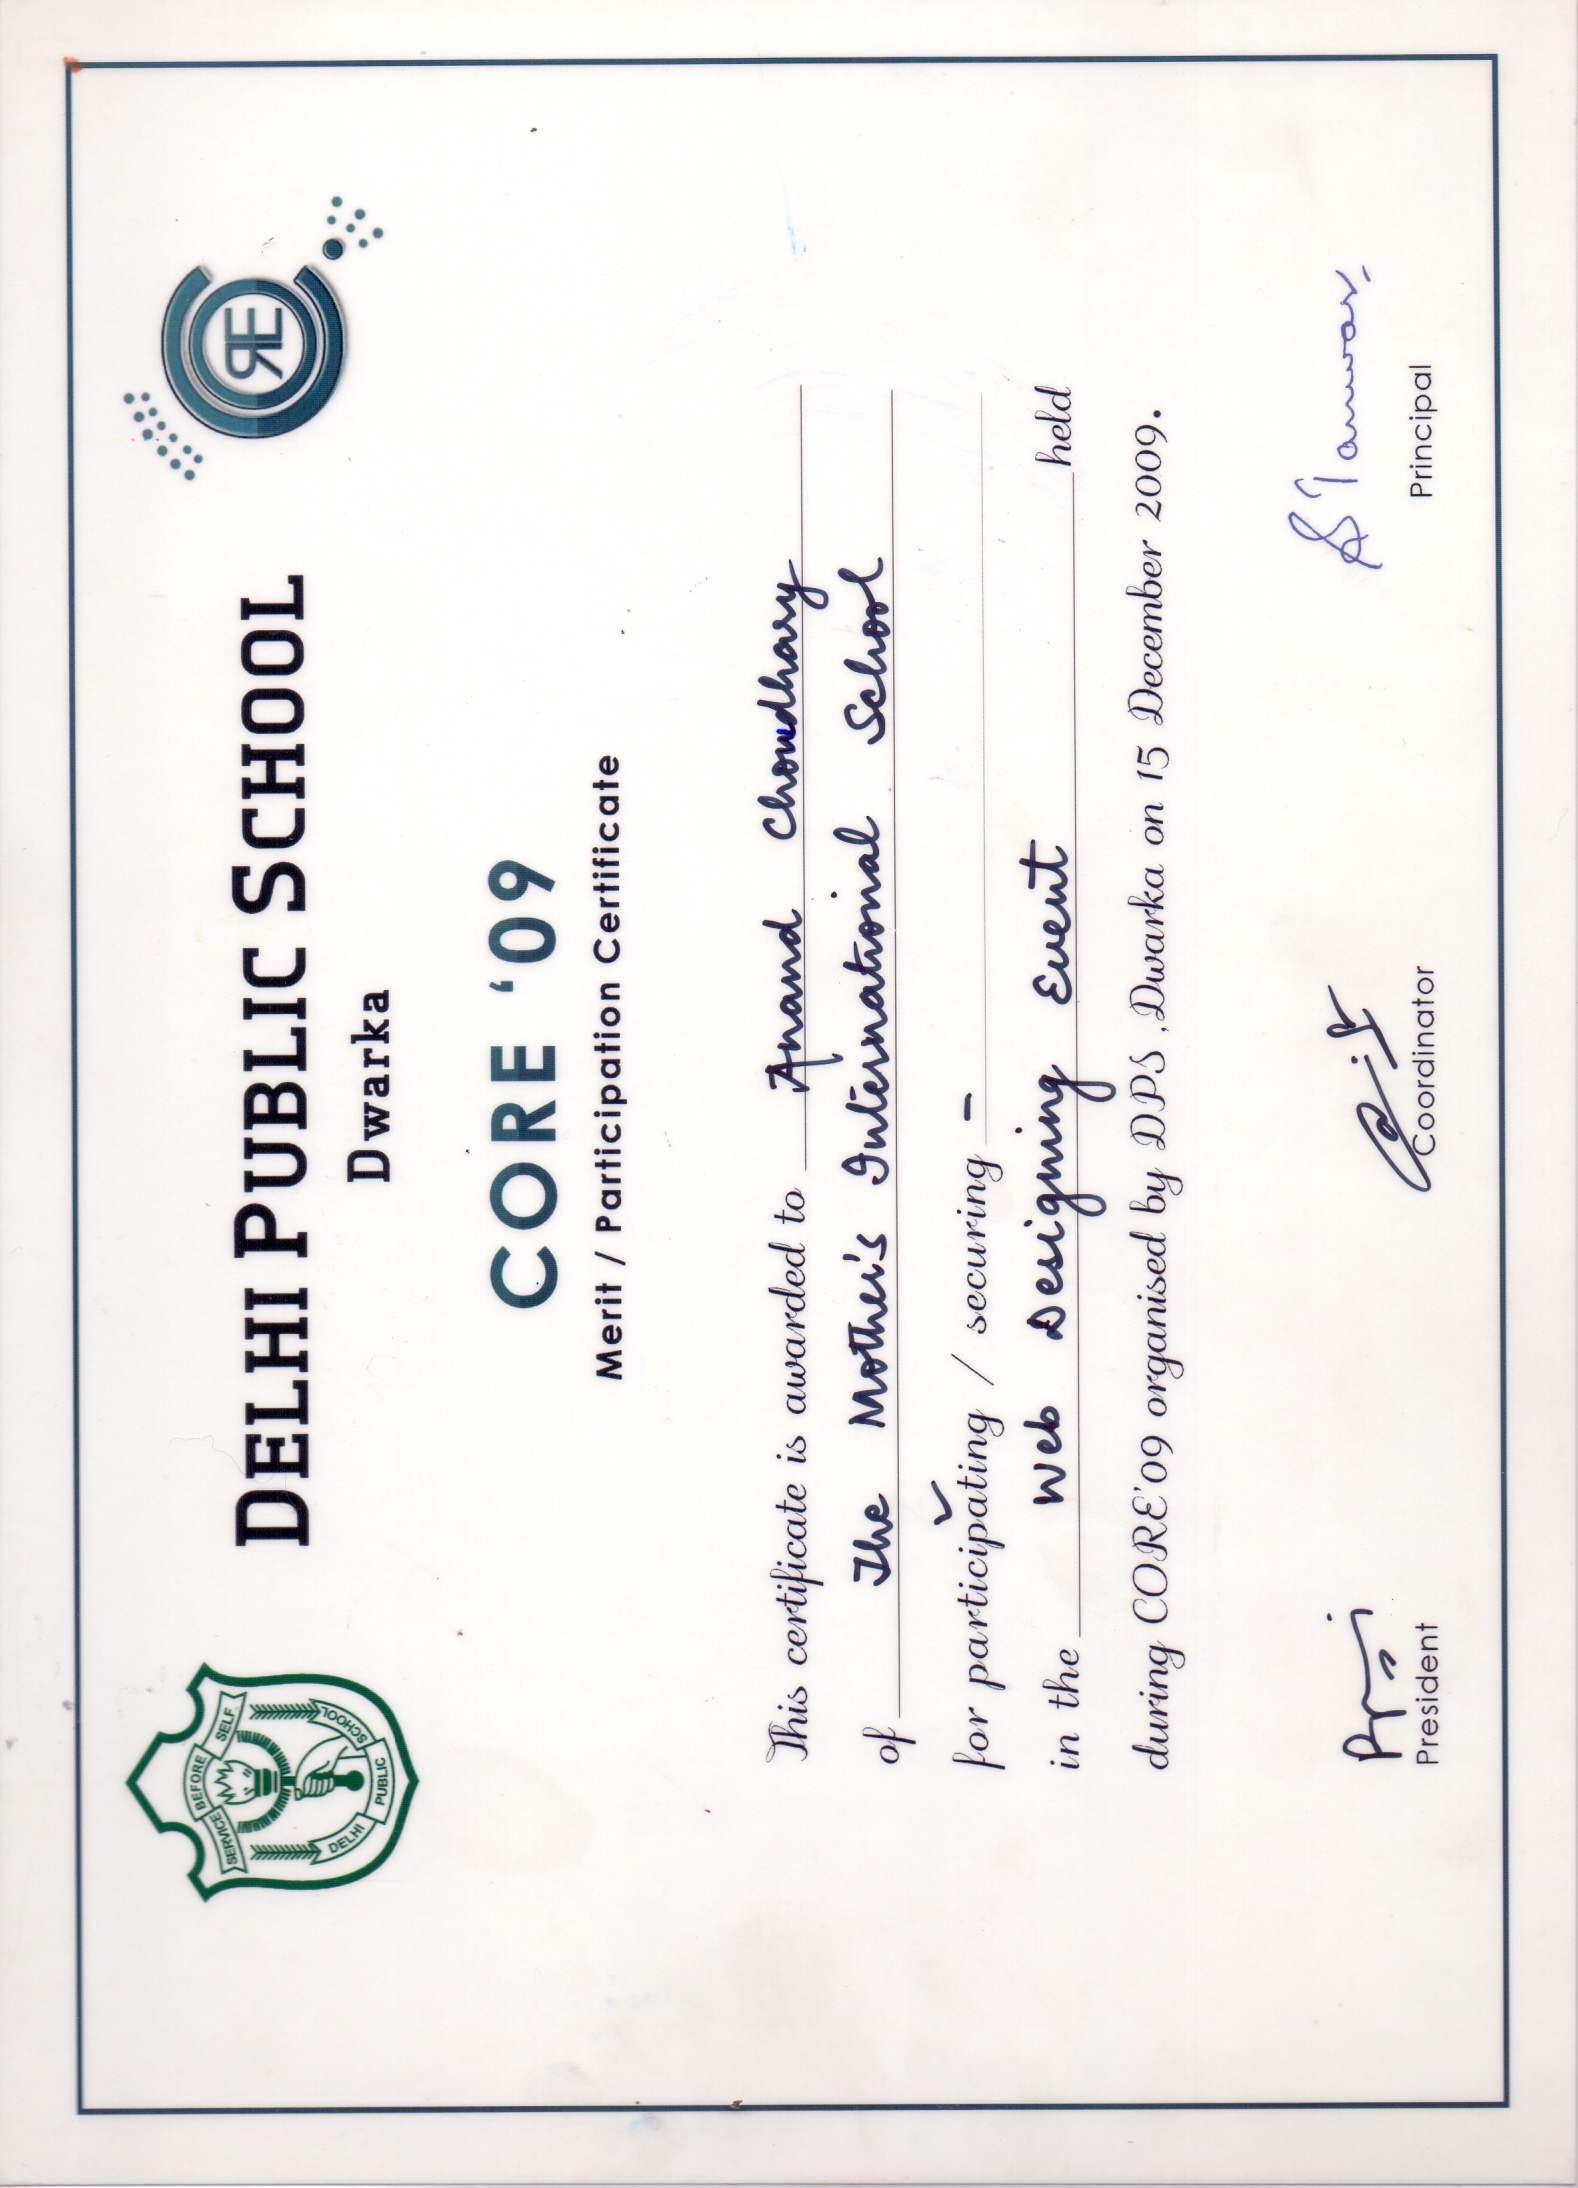 SERVICE BEFORE SELF
DELHI PUBLIC SCHOOL
DELHI PUBLIC SCHOOL
Dwarka
CORE
CORE ‘09
Merit / Participation Certificate
This certificate is awarded to Anand Chowdhary
of The Mother's International School
for participating / securing -
in the Web Designing Event held
during CORE'09 organised by DPS ,Dwarka on 15 December 2009.
S Tanwar
President Coordinator Principal